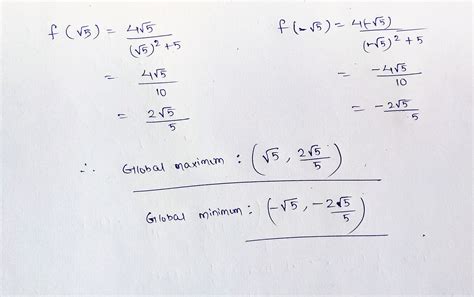 f(√5) = 4√5 / (√5)² + 5
= 4√5 / 10
= 2√5 / 5
f(-√5) = 4(-√5) / (-√5)² + 5
= -4√5 / 10
= -2√5 / 5
∴ Global maximum : (√5, 2√5/5)
Global minimum : (-√5, -2√5/5)